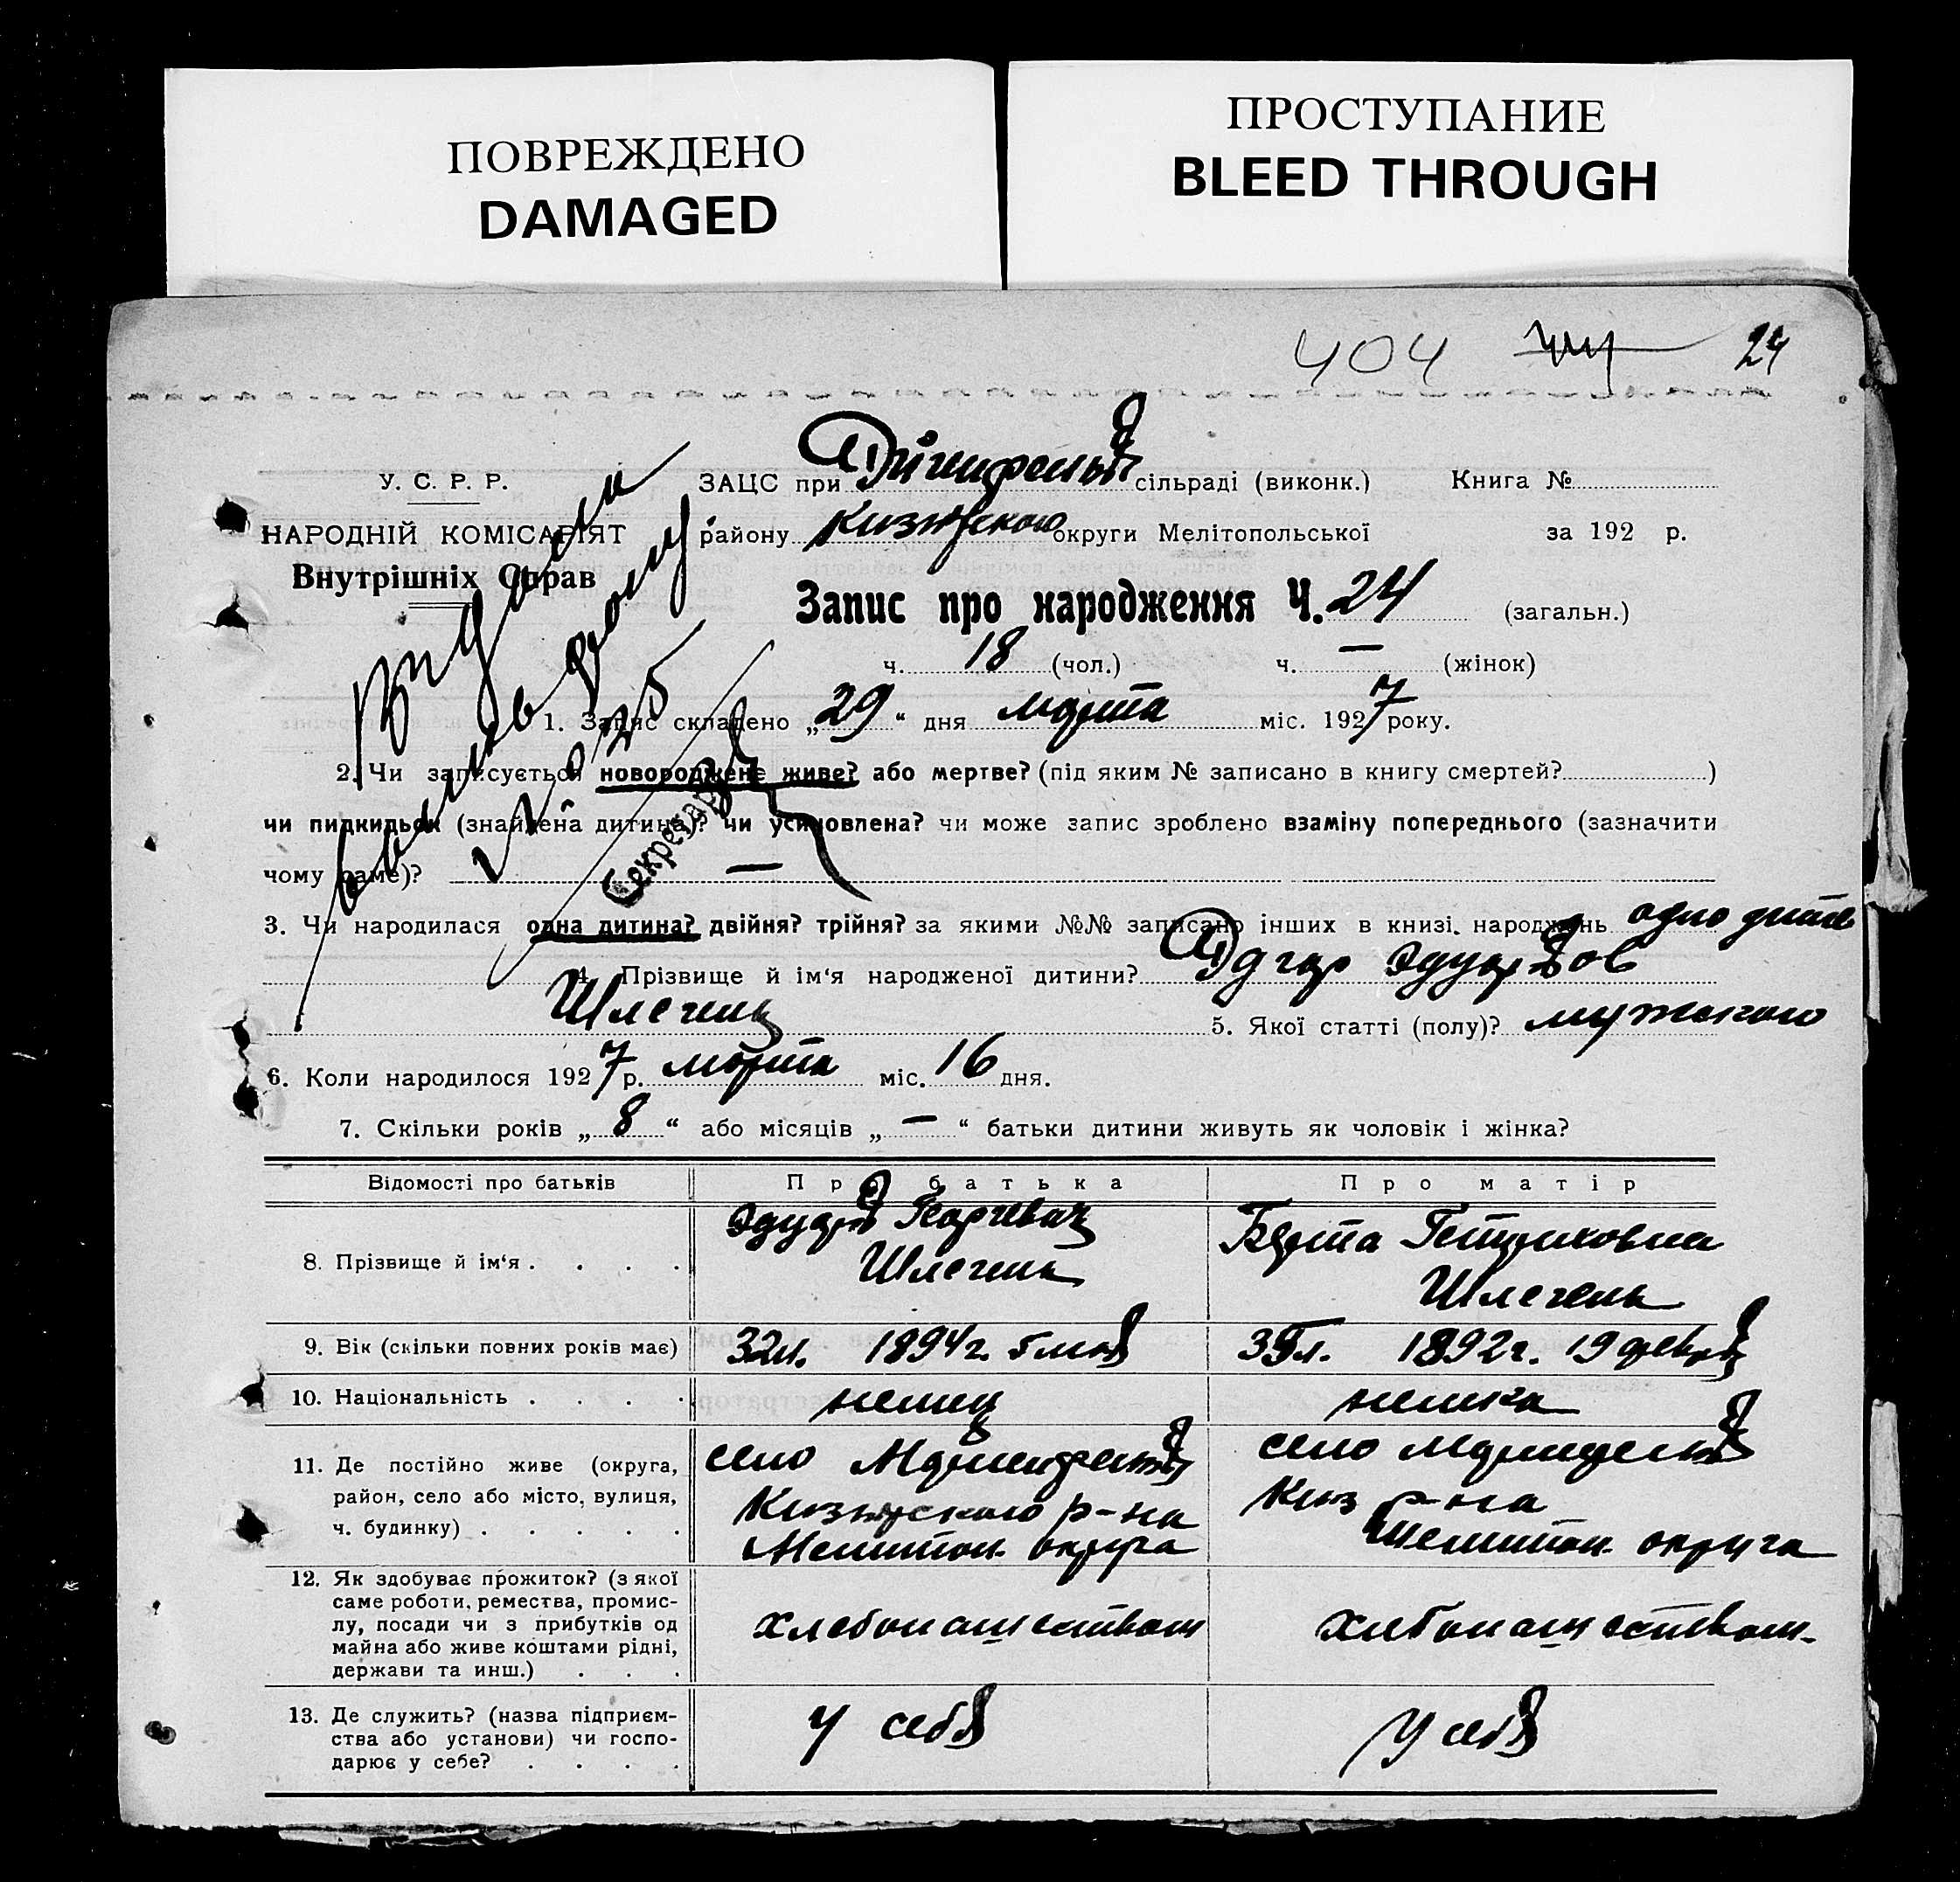 ПОВРЕЖДЕНО
DAMAGED
ПРОСТУПАНИЕ
BLEED THROUGH
404 24
У. С. Р. Р.
НАРОДНІЙ КОМІСАРІЯТ
Внутрішніх Справ
ЗАЦС при сільраді (виконк.) Книга №
району округи Мелітопольської за 192 р.
Запис про народження Ч. 24 (загальн.)
ч. 18 (чол.) ч. — (жінок)
1. Запис складено „29“ дня марта міс. 1927 року.
2. Чи записується новороджене живе? або мертве? (під яким № записано в книгу смертей? )
чи пидкидьок (знайдена дитина)? чи усиновлена? чи може запис зроблено взаміну попереднього (зазначити
чому саме)? —
3. Чи народилася одна дитина? двійня? трійня? за якими №№ записано інших в книзі народжень одно дитя
4. Прізвище й ім‘я народженої дитини? Эдгар Эдуардов
Шлегель 5. Якої статті (полу)? мужского
6. Коли народилося 1927 р. марта міс. 16 дня.
7. Скільки років „8“ або місяців „—“ батьки дитини живуть як чоловік і жінка?
Видана
Секретар
Відомості про батьків Про батька Про матір
8. Прізвище й ім‘я . . . . Эдуард Георгевич Шлегель Берта Шлегель
9. Вік (скільки повних років має) 32 л. 1894 г. 1892 г. 19 февр
10. Національність . . . . немец немка
11. Де постійно живе (округа,
район, село або місто, вулиця,
ч. будинку) . . . . .
село
р-на
Мелитоп. округа
село
Киз р-на
Мелитоп. округа
12. Як здобуває прожиток? (з якої
саме роботи, ремества, промис-
лу, посади чи з прибутків од
майна або живе коштами рідні,
держави та инш.) . . .
хлебопашеством
хлебопашеством
13. Де служить? (назва підприєм-
ства або установи) чи госпо-
дарює у себе? . . . .
у себя
у себя